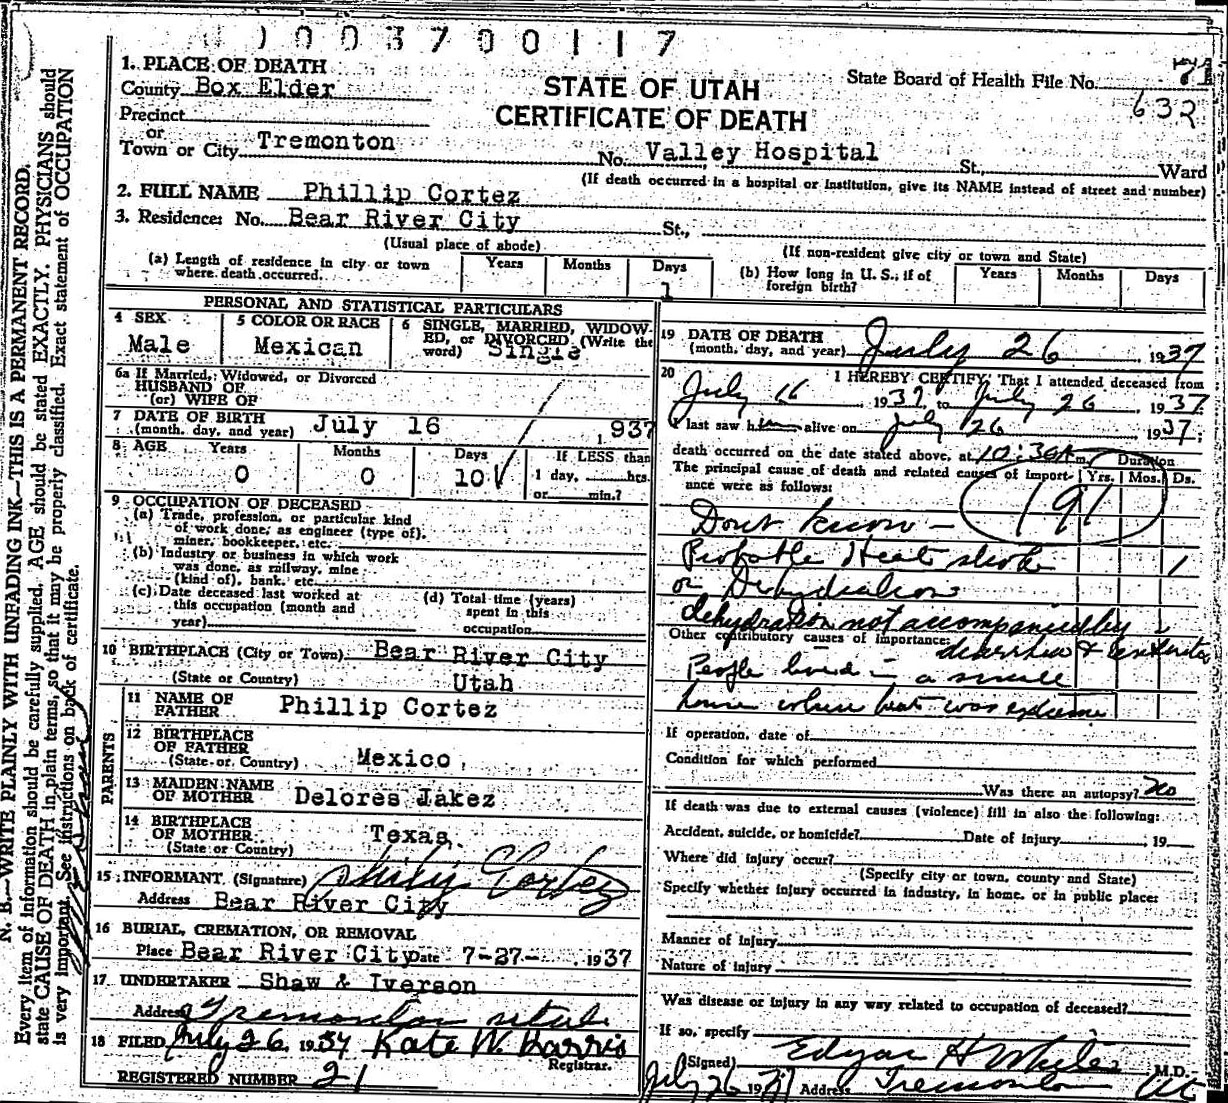 1003700117
1. PLACE OF DEATH
County Box Elder
Precinct
or
Town or City Tremonton
STATE OF UTAH
CERTIFICATE OF DEATH
State Board of Health File No. 71
632
No. Valley Hospital St., Ward
(If death occurred in a hospital or institution, give its NAME instead of street and number)
2. FULL NAME Phillip Cortez
3. Residence: No. Bear River City St.,
(Usual place of abode) (If non-resident give city or town and State)
(a) Length of residence in city or town where death occurred. Years Months Days 1
(b) How long in U. S.; if of foreign birth? Years Months Days
PERSONAL AND STATISTICAL PARTICULARS
4 SEX Male
5 COLOR OR RACE Mexican
6 SINGLE, MARRIED, WIDOWED, or DIVORCED (Write the word) Single
6a If Married, Widowed, or Divorced
HUSBAND OF
(or) WIFE OF
7 DATE OF BIRTH (month, day, and year) July 16 1937
8 AGE Years 0 Months 0 Days 10 If LESS than 1 day, hrs. or min.?
9 OCCUPATION OF DECEASED
(a) Trade, profession, or particular kind
of work done, as engineer (type of),
miner, bookkeeper, etc.
(b) Industry or business in which work
was done, as railway, mine
(kind of), bank, etc.
(c) Date deceased last worked at
this occupation (month and
year)
(d) Total time (years)
spent in this
occupation
10 BIRTHPLACE (City or Town) Bear River City
(State or Country) Utah
PARENTS
11 NAME OF FATHER Phillip Cortez
12 BIRTHPLACE OF FATHER (State or Country) Mexico
13 MAIDEN NAME OF MOTHER Delores Jakez
14 BIRTHPLACE OF MOTHER (State or Country) Texas
15 INFORMANT (Signature) Philip Cortez
Address Bear River City
16 BURIAL, CREMATION, OR REMOVAL
Place Bear River City Date 7-27- 1937
17 UNDERTAKER Shaw & Iverson
Address Tremonton Utah
18 FILED July 26, 1937 Kate W. Harris
Registrar.
REGISTERED NUMBER 21
19 DATE OF DEATH
(month, day, and year) July 26 1937
20 I HEREBY CERTIFY, That I attended deceased from
July 16 1937, to July 26 1937
I last saw him alive on July 26 1937;
death occurred on the date stated above, at 10:30 A m.
The principal cause of death and related causes of importance were as follows: Duration Yrs. Mos. Ds.
191
Dont know -
Probable Heat stroke 1
or Dehydration
dehydration not accompanied by
Other contributory causes of importance: diarrhea & enteritis
People lived in a small
house where heat was extreme
If operation, date of
Condition for which performed
Was there an autopsy? No
If death was due to external causes (violence) fill in also the following:
Accident, suicide, or homicide? Date of injury 19
Where did injury occur?
(Specify city or town, county and State)
Specify whether injury occurred in industry, in home, or in public place:
Manner of injury
Nature of injury
Was disease or injury in any way related to occupation of deceased?
If so, specify
(Signed) Edgar H White M.D.
July 26 1937 Address Tremonton Ut
N. B.—WRITE PLAINLY WITH UNFADING INK—THIS IS A PERMANENT RECORD.
Every item of information should be carefully supplied. AGE should be stated EXACTLY. PHYSICIANS should
state CAUSE OF DEATH in plain terms, so that it may be properly classified. Exact statement of OCCUPATION
is very important. See instructions on back of certificate.